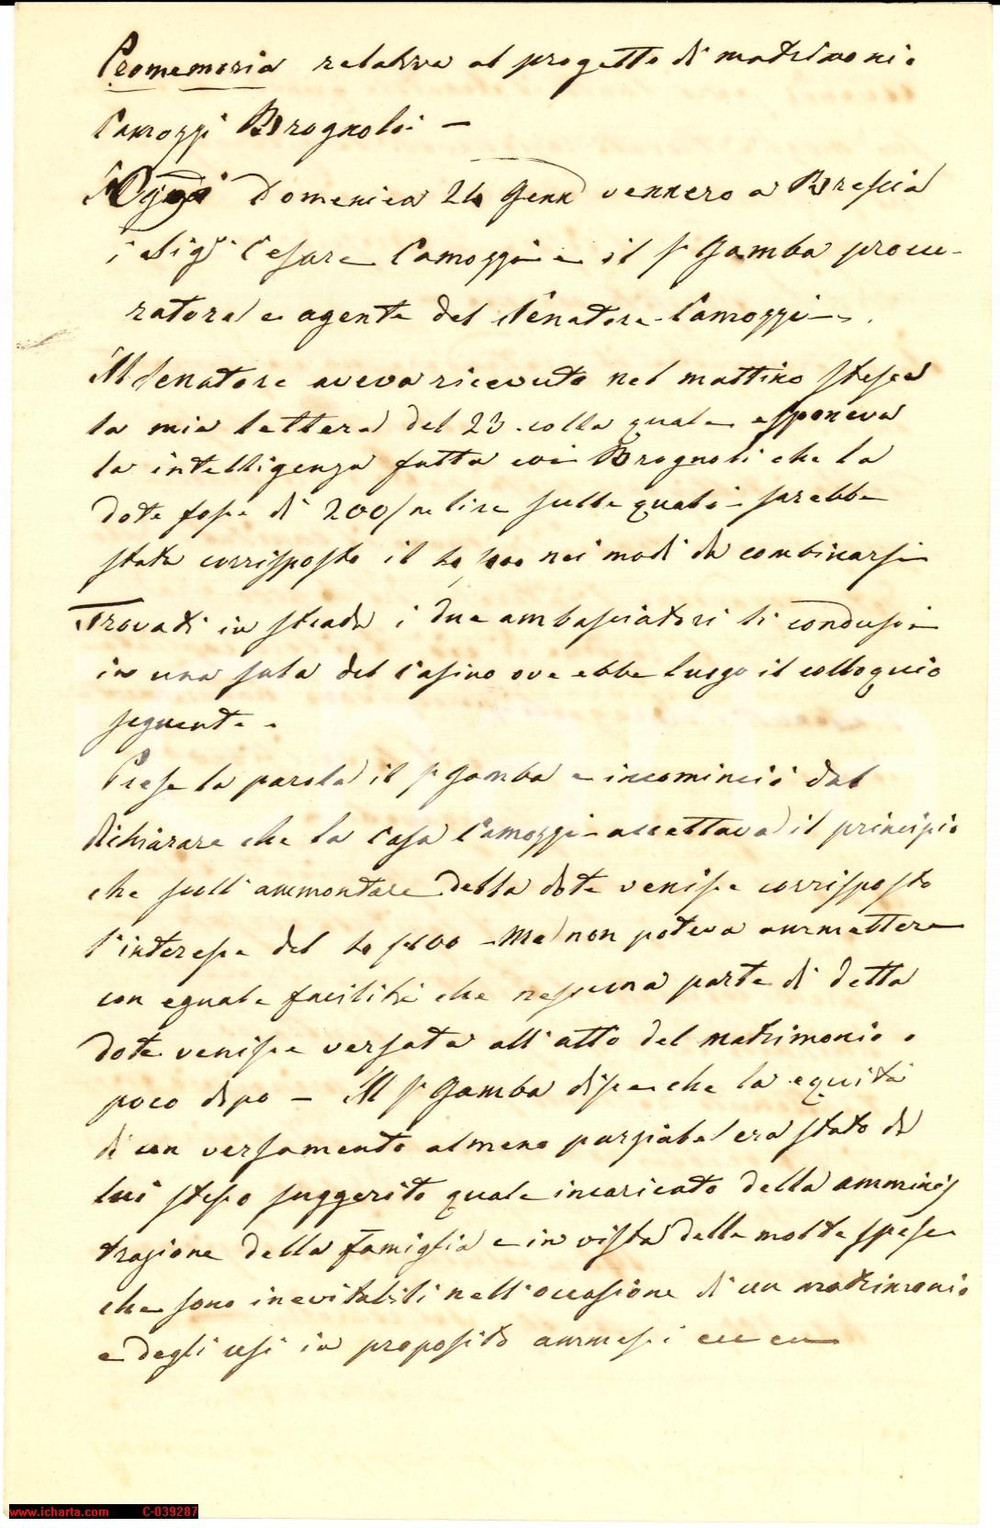 Promemoria relativa al progetto di matrimonio
Camozzi Brognoli —
Oggi Domenica 24 Genn vennero a Brescia
i Sigri Cesare Camozzi e il Sr Gamba procu-
ratore e agente del Senatore Camozzi —.
Il Senatore aveva ricevuto nel mattino stesso
la mia lettera del 23 colla quale esponeva
la intelligenza fatta coi Brognoli che la
dote fosse di 200/m lire sulle quali sarebbe
stato corrisposto il 4 p% nei modi da combinarsi
Trovati in strada i due ambasciatori li condussi
in una sala del Casino ove ebbe luogo il colloquio
seguente.
Prese la parola il Sr Gamba e incominciò dal
dichiarare che la Casa Camozzi accettava il principio
che sull'ammontare della dote venisse corrisposto
l'interesse del 4 p% – Ma non poteva ammettere
con eguale facilità che nessuna parte di detta
dote venisse versata all'atto del matrimonio o
poco dopo – Il Sr Gamba disse che la equità
di un versamento almeno parziale era stato da
lui stesso suggerito quale incaricato della amminis
trazione della famiglia e in vista delle molte spese
che sono inevitabili nell'occasione di un matrimonio
e degli usi in proposito ammessi ecc ecc
www.icharta.com C-039287